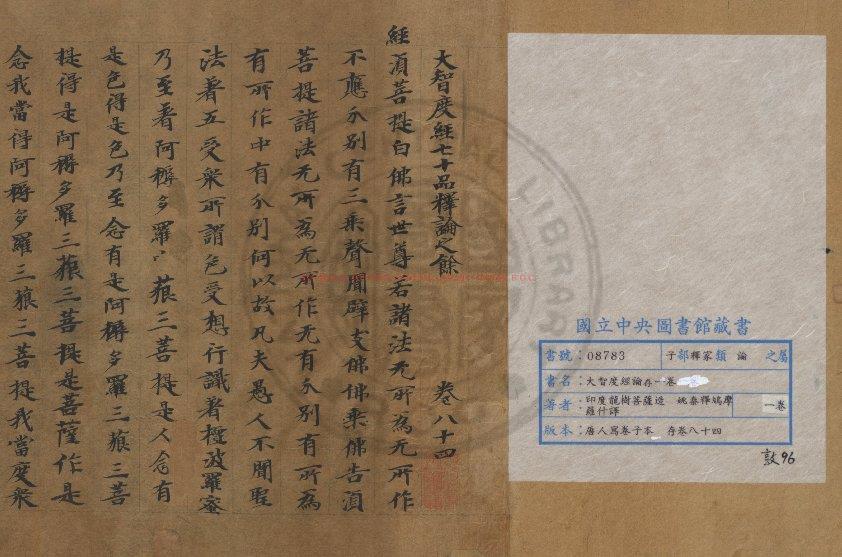 國立中央圖書館藏書
書號：08783 子部釋家類 論 之屬
書名：大智度經論存一卷
著者：印度龍樹菩薩造 姚秦釋鳩摩羅什譯 一卷
版本：唐人寫卷子本 存卷八十四
敦96
大智度經七十品釋論之餘 卷八十四
經湏菩提白佛言世尊若諸法无所為无所作
不應分別有三乘聲聞辟支佛佛乘佛告湏
菩提諸法无所為无所作无有分別有所為
有所作中有分別何以故凡夫愚人不聞聖
法著五受衆所謂色受想行識著檀波羅蜜
乃至著阿耨多羅三藐三菩提是人念有
是色得是色乃至念有是阿耨多羅三藐三菩
提得是阿耨多羅三藐三菩提是菩薩作是
念我當得阿耨多羅三藐三菩提我當度衆
LIBRARY